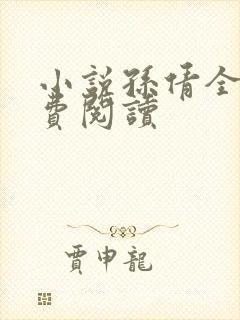 小說孫倩全
費閱讀
賈申龍